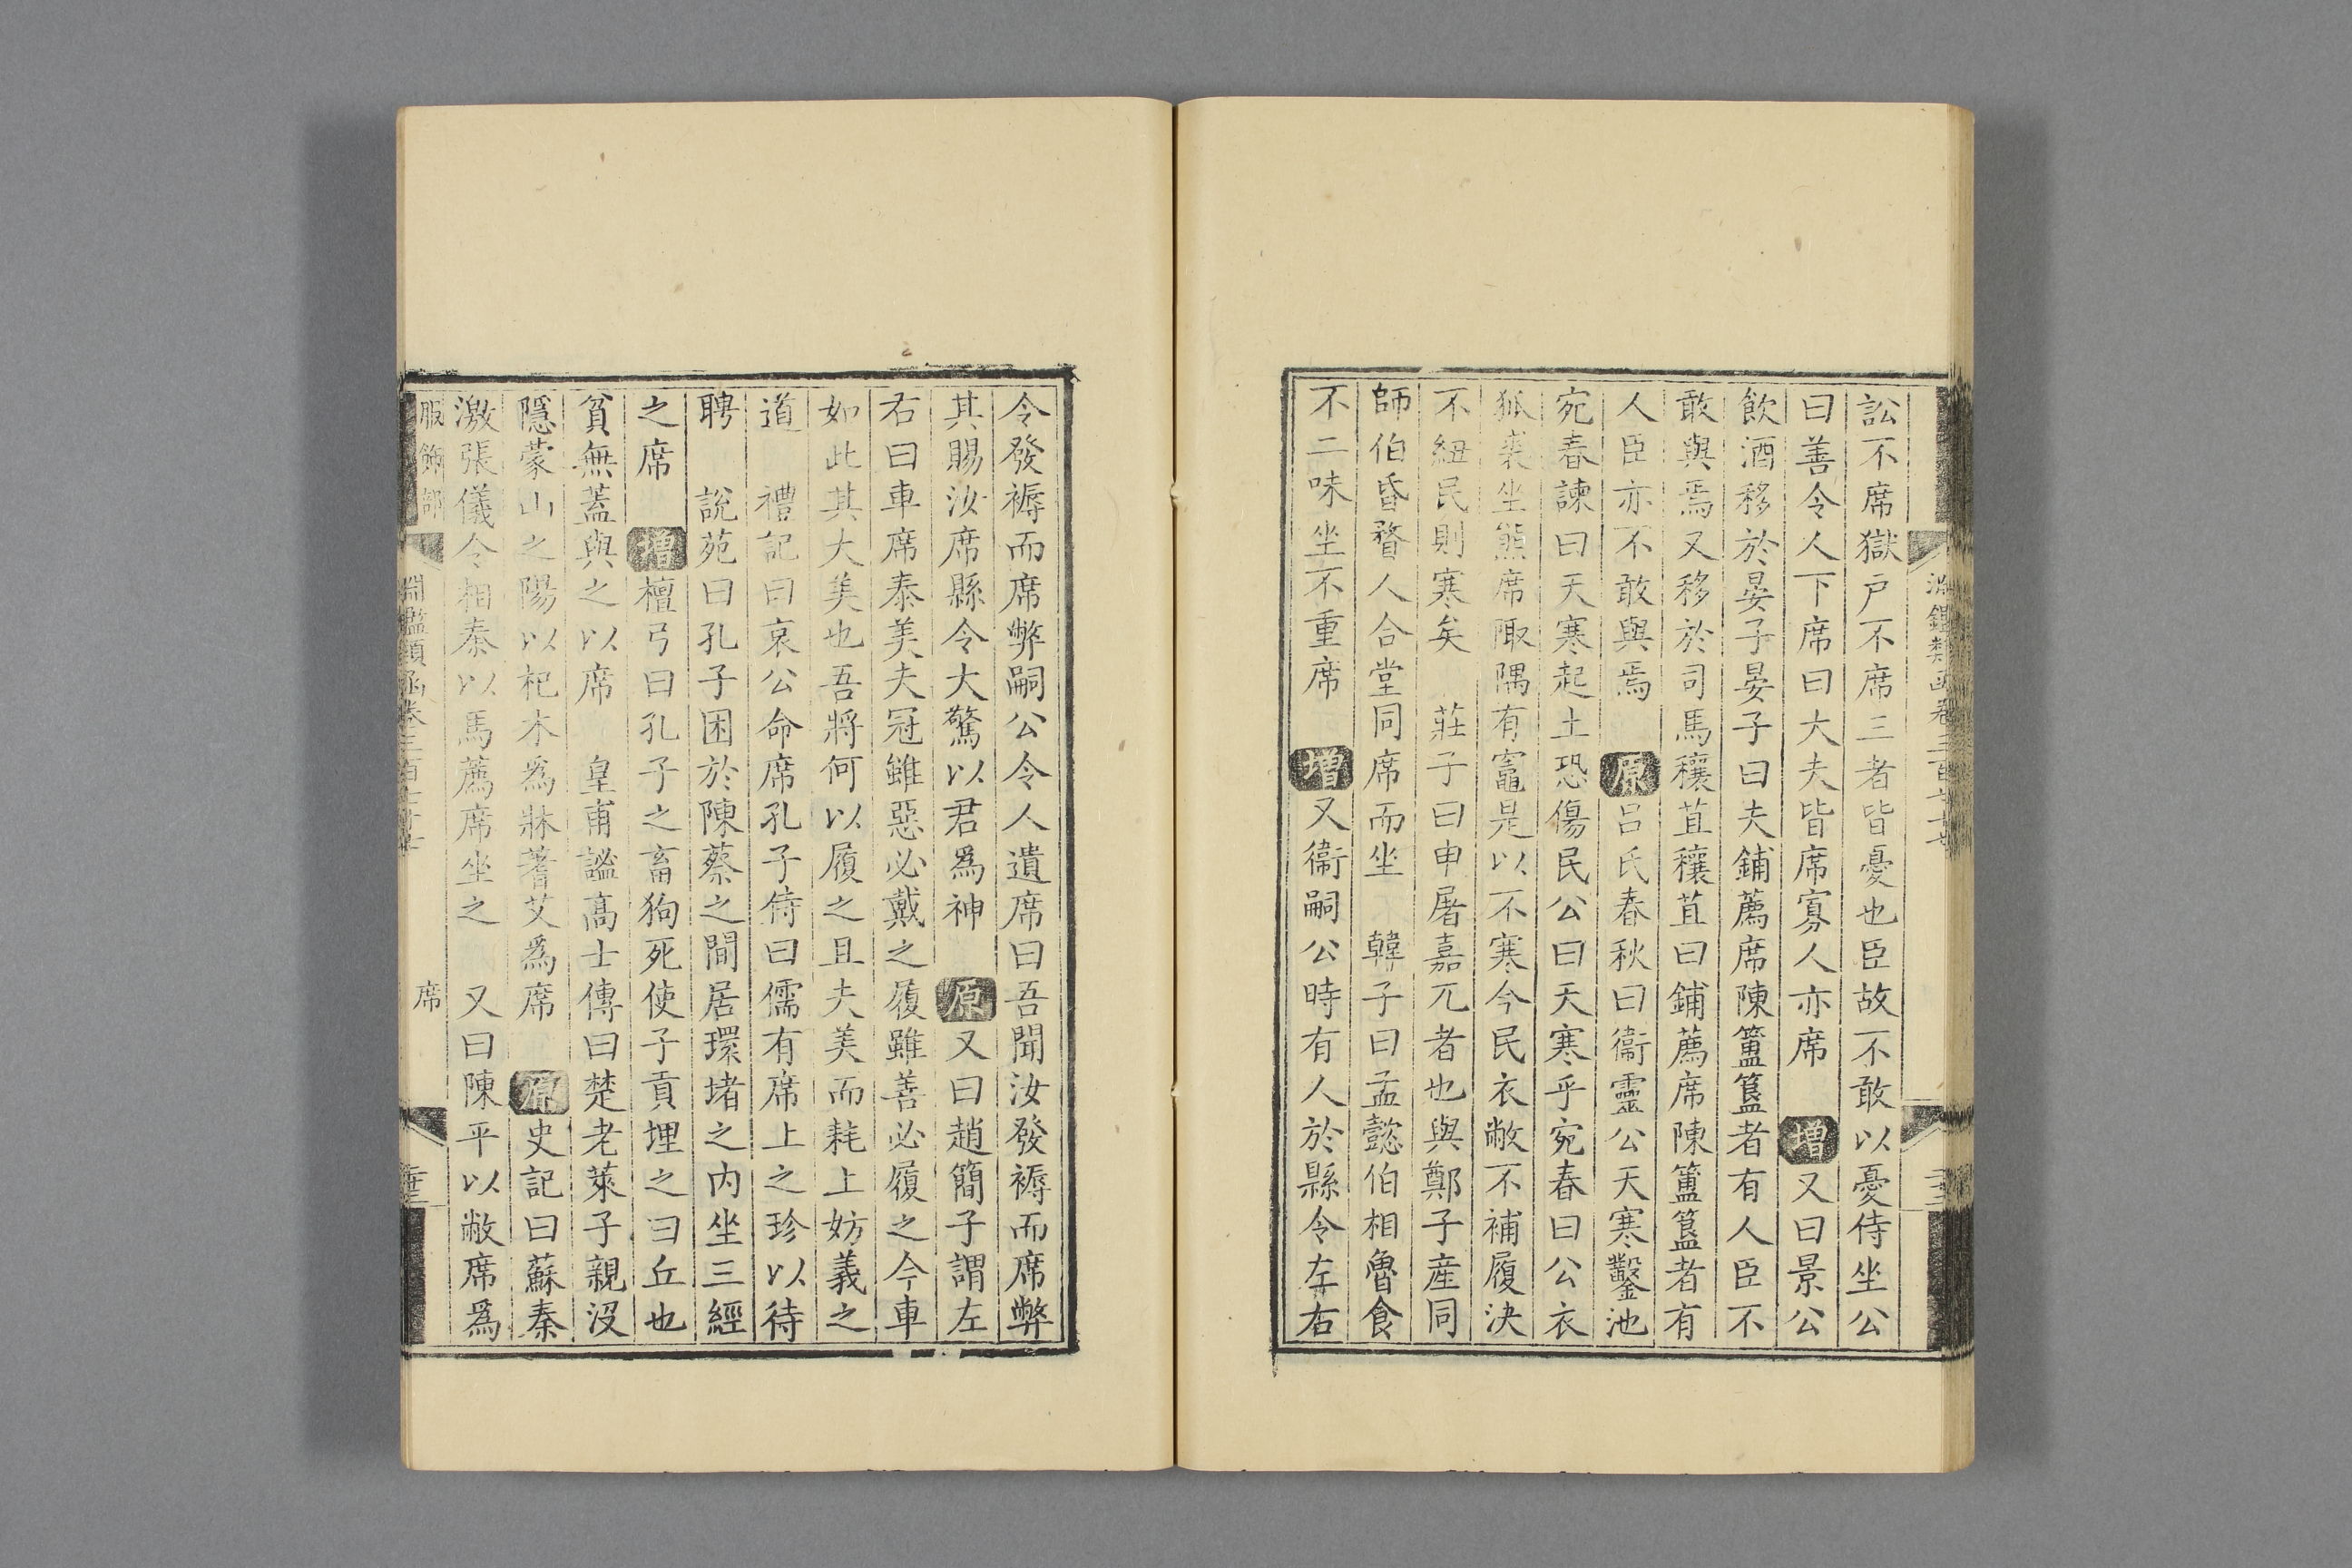 訟不席獄戸不席三者皆憂也臣故不敢以憂侍坐公
曰善令人下席曰大夫皆席寡人亦席 增 又曰景公
飲酒移於晏子晏子曰夫鋪薦席陳簠簋者有人臣不
敢與焉又移於司馬穰苴穰苴曰鋪薦席陳簠簋者有
人臣亦不敢與焉 原 呂氏春秋曰衞靈公天寒鑿池
宛春諫曰天寒起土恐傷民公曰天寒乎宛春曰公衣
狐裘坐熊席陬隅有竈是以不寒今民衣敝不補履決
不紐民則寒矣 莊子曰申屠嘉兀者也與鄭子產同
師伯昏瞀人合堂同席而坐 韓子曰孟懿伯相魯食
不二味坐不重席 增 又衞嗣公時有人於縣令左右
令發褥而席弊嗣公令人遺席曰吾聞汝發褥而席弊
其賜汝席縣令大驚以君爲神 原 又曰趙簡子謂左
右曰車席泰美夫冠雖惡必戴之履雖善必履之今車
如此其大美也吾將何以履之且夫美而耗上妨義之
道 禮記曰哀公命席孔子侍曰儒有席上之珍以待
聘 說苑曰孔子困於陳蔡之間居環堵之内坐三經
之席 增 檀弓曰孔子之畜狗死使子貢埋之曰丘也
貧無蓋與之以席 皇甫謐高士傳曰楚老萊子親沒
隱蒙山之陽以杞木爲牀蓍艾爲席 原 史記曰蘇秦
激張儀令相秦以馬薦席坐之 又曰陳平以敝席爲
服飾部 淵鑑類函卷三百七十七 席